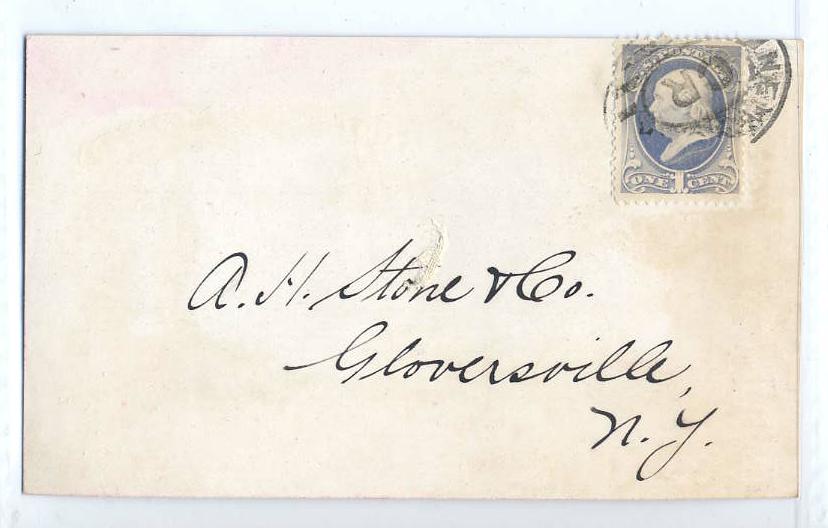 ONE 1 CENT
A. H. Stone & Co.
Gloversville,
N. Y.